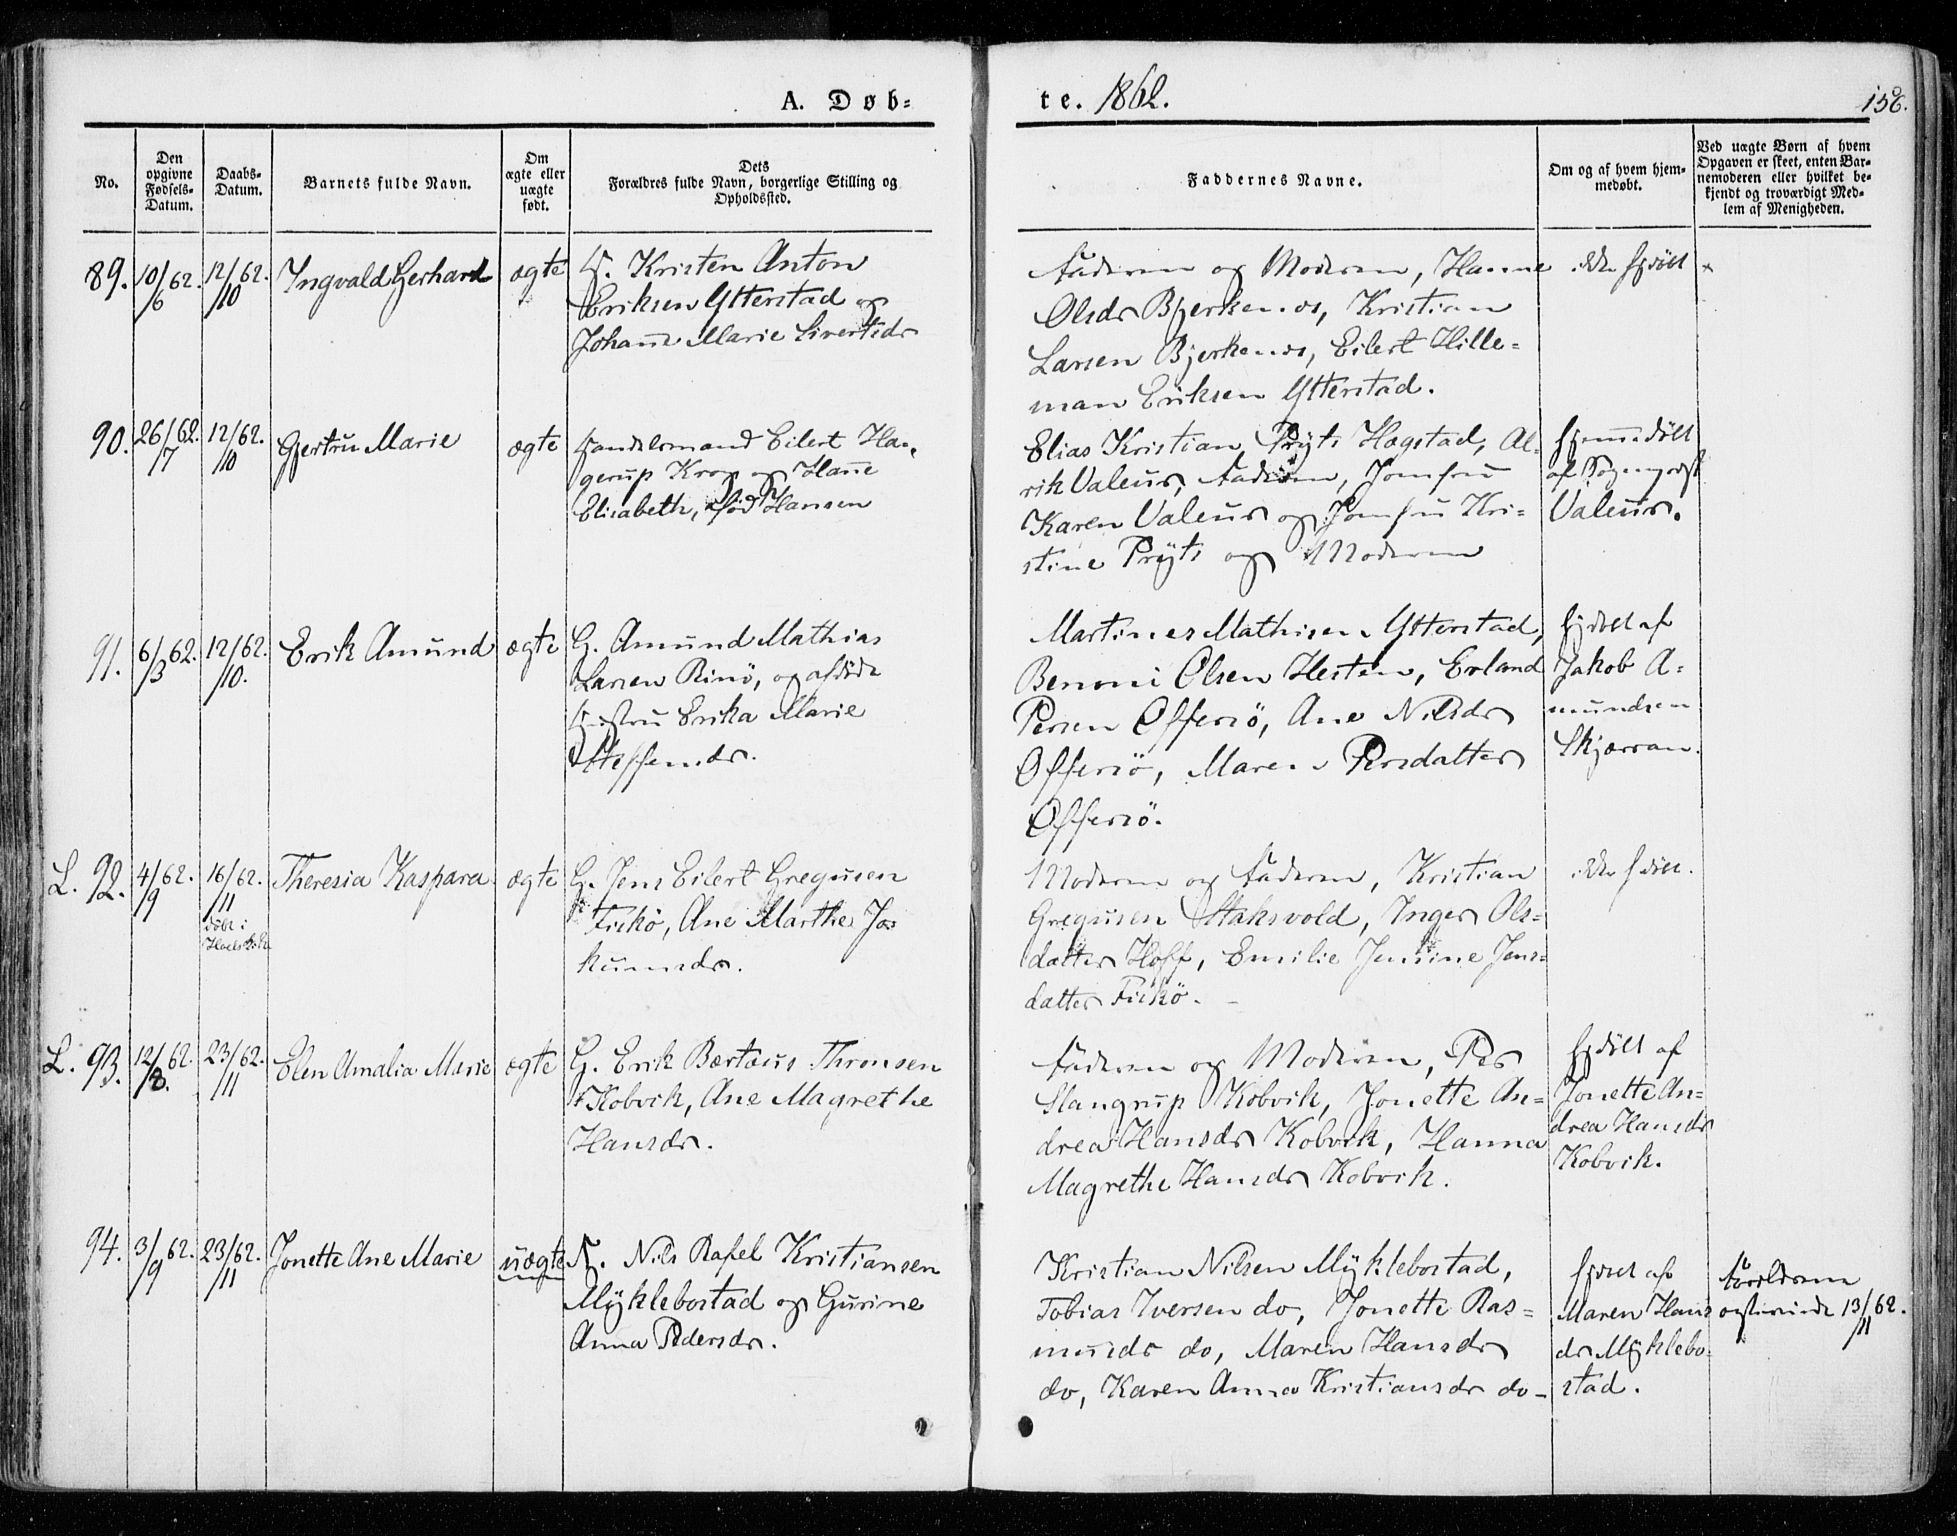 A. Døb-
te. 1862.
156.
No.
Den opgivne Fødsels-Datum.
Daabs-Datum.
Barnets fulde Navn.
Om ægte eller uægte født.
Dets Forældres fulde Navn, borgerlige Stilling og Opholdssted.
Faddernes Navne.
Om og af hvem hjem-medøbt.
Ved uægte Børn af hvem Opgaven er skeet, enten Bar-nemoderen eller hvilket be-kjendt og troværdigt Med-lem af Menigheden.
89.
10/6 62.
12/10 62.
Ingvald Gerhard
ægte
Kristen Anton
Eriksen Ytterstad og
Johanne Marie Sivertsdr
Faderen og Moderen, Hanne
Olsdr Bjerkenes, Kristian
Larsen Bjerkenes, Eilert Hille-
man Eriksen Ytterstad.
ikke hjdøbt
90.
26/7 62.
12/10 62.
Gjertru Marie
ægte
Handelsmand Eilert Ha-
gerup Krog og Hanne
Elisabeth, fød Hansen
Elias Kristian Prÿts Hægstad, Al-
rik Valeur, Faderen, Jomfru
Karen Valeur og Jomfru Kri-
stine Prÿts og Moderen
hjemmedøbt
af Sogneprest
Valeur.
91.
6/3 62.
12/10 62.
Erik Amund
ægte
G. Amund Mathias
Larsen Rinö, og afdöde
Hustru Erika Marie
Steffensdr.
Martines Mathisen Ytterstad,
Benoni Olsen Hesten, Erland
Persen Offersö, Ane Nilsdr
Offersö, Maren Persdatter
Offersö.
hjdöbt af
Jakob A-
mundsen
Skjærran.
L. 92.
4/9 62.
16/11 62.
döbt i
Theresia Kaspara
ægte
G. Jens Eilert Gregusen
Fiskö, Ane Marthe Joa-
kumsdr.
Moderen og Faderen, Kristian
Gregusen Staksvold, Inger Ols-
datter Hoff, Emilie Jensine Jens-
datter Fiskö.
ikke hjdöbt.
L. 93.
12/8 62.
23/11 62.
Elen Amalia Marie
ægte
G. Erik Bærtæus Thronsen
Kobvik, Ane Magrethe
Hansdr.
Faderen og Moderen, Per
Slangrup Kobvik, Jonette An-
drea Hansdr Kobvik, Hanna
Magrethe Hansdr Kobvik.
hjdöbt af
Jonette An-
drea Hansdr
Kobvik.
94.
3/9 62.
23/11 62.
Jonette Ane Marie
uægte
F. Nils Rafel Kristiansen
Mÿklebostad og Gurine
Anna Pedersdr.
Kristian Nilsen Mÿklebostad,
Tobias Iversen do, Jonette Ras-
musdr do, Maren Hansdr
do, Karen Anna Kristiansdr do-
hjdöbt af
Maren Hans
dr Mÿklebo-
stad.
Forældrene
ægteviede 13/11 62.